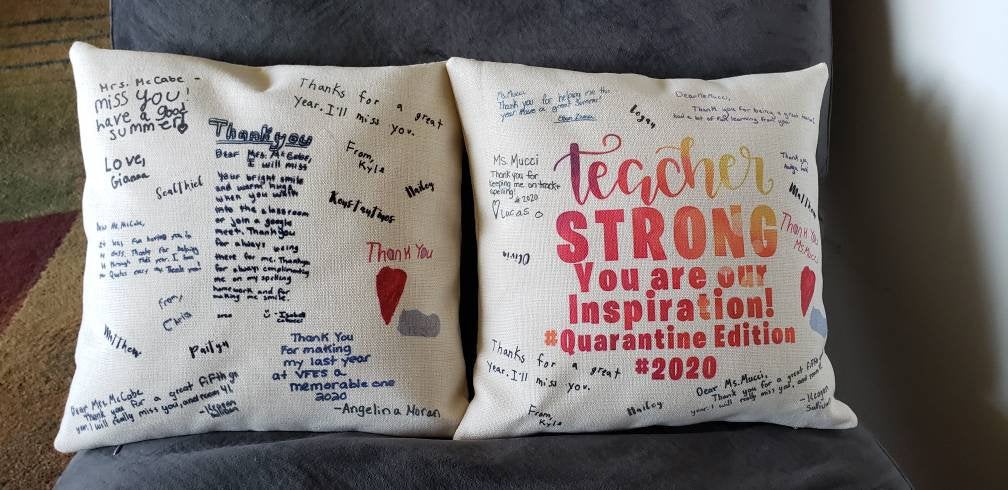 Mrs. McCabe -
miss you!
have a good
summer
Love,
Gianna
Thank you
Dear Mrs. McCabe,
I will miss
Your bright smile
and warm hugs
when you walk
into the classroom
or join a google
meet. Thank you
for always being
there for me. Thank you
for always complimenting
me on my spelling
homework and for
making me smile.
Thanks for a great
year. I'll miss you.
From,
Kyle
Hailey
Konstantinos
Thank You
Dear Mr. McCabe,
From,
Chris
Matthew
Pailyn
Thank You
For making
my last year
at VFES a
memorable one
2020
-Angelina Moran
Dear Mrs. McCabe
Thank you for a great fifth grade
year. I will really miss you, and room 41.
-Keegan
Ms. Mucci
Thank you for helping me this
year! Have a great summer!
Logan
Dear Ms. Mucci,
Thank you for being a great
had a lot of fun learning from you
Ms. Mucci
Thank you for
keeping me on track
spelling!
#2020
Lucas
Olivia
teacher
STRONG
You are our
Inspiration!
#Quarantine Edition
#2020
Thank you
Matthew
Thank You
Ms. Mucci
Thanks for a great
year. I'll miss you.
From,
Kyle
Hailey
Dear Ms. Mucci,
Thank you for a great fifth
year. I will really miss you, and room
-Keegan
Sullivan